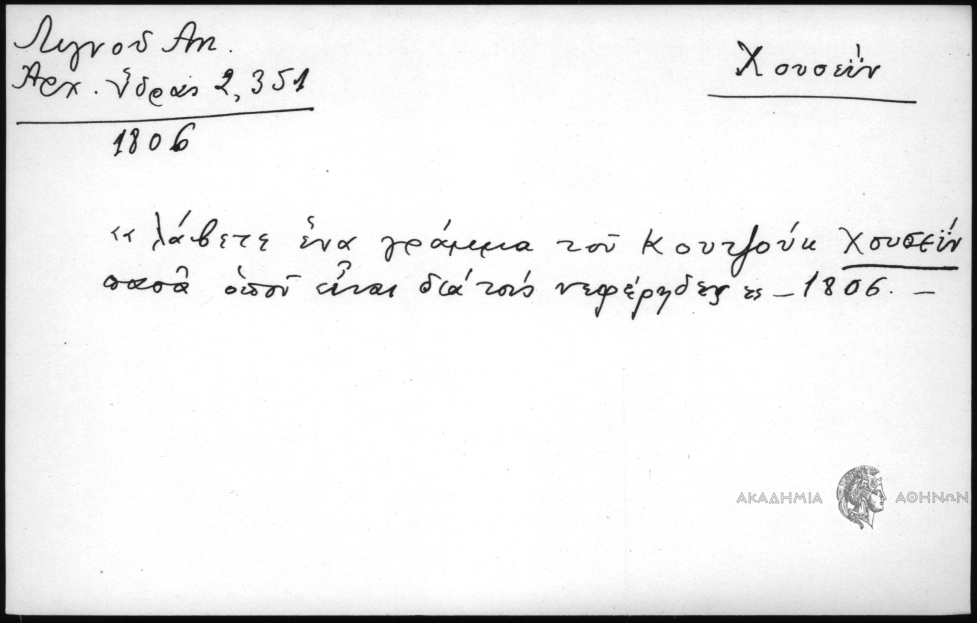 Λιγνοῦ Αντ.
Αρχ. Ὕδρας 2, 351
1806
Χουσεΐν
« λάβετε ἕνα γράμμα τοῦ Κουτζούκ Χουσεΐν
πασᾶ ὁποῦ εἶναι διά τούς νεφέρηδες » – 1806. –
ΑΚΑΔΗΜΙΑ ΑΘΗΝΩΝ